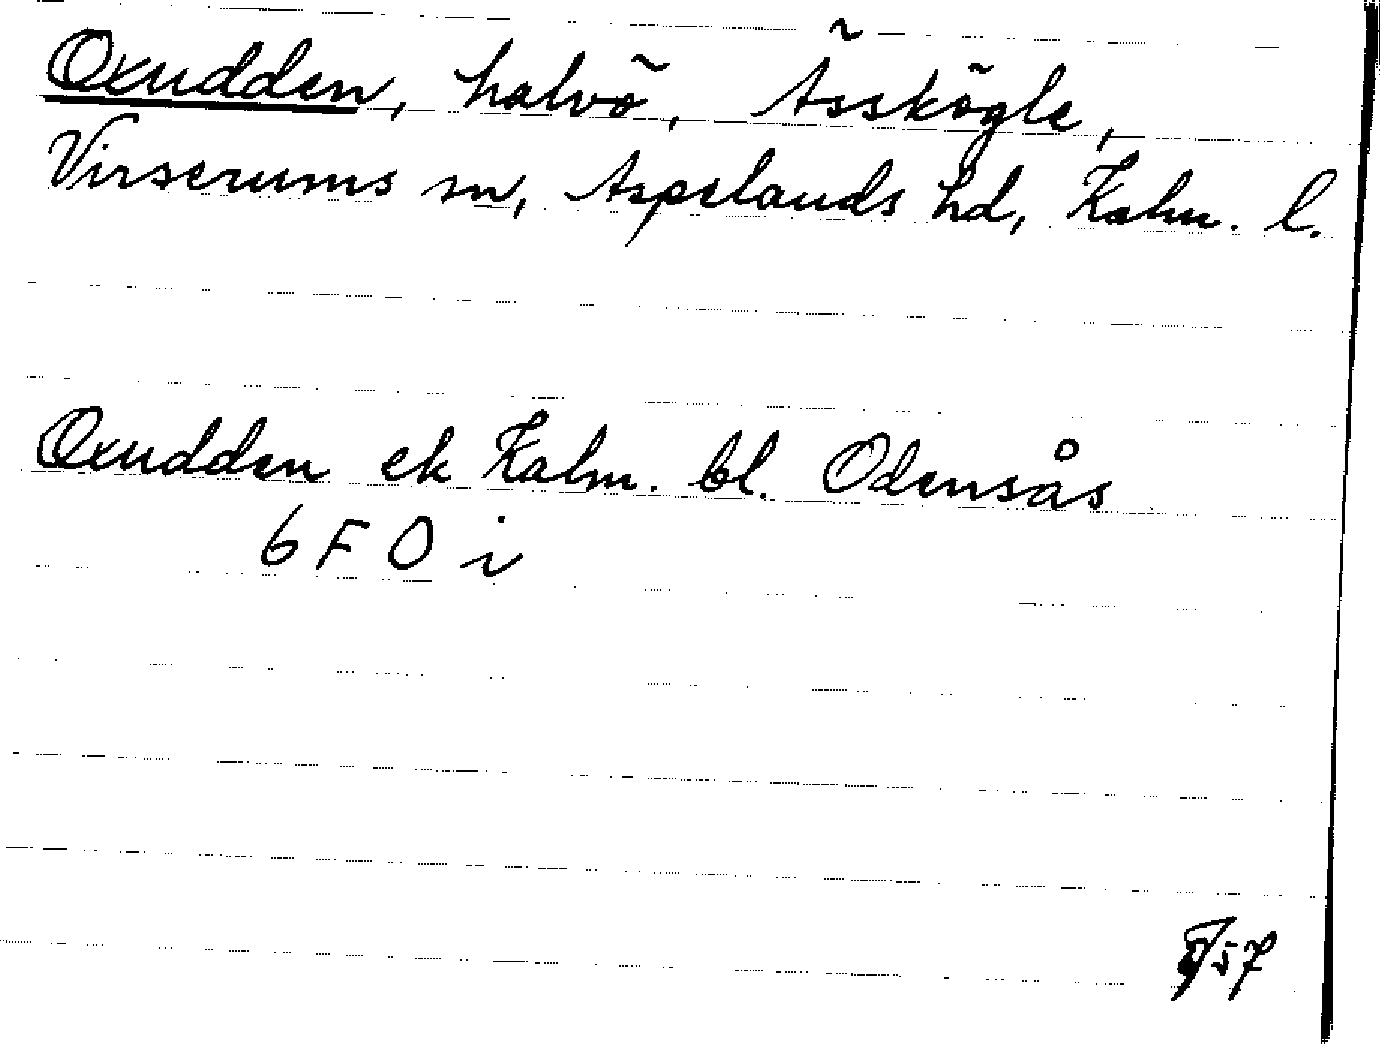 Oxudden, halvö, Ässkögle,
Virserums sn, Aspelands hd, Kalm. l.
Oxudden ek Kalm. bl. Odensås
6 F 0 i
57